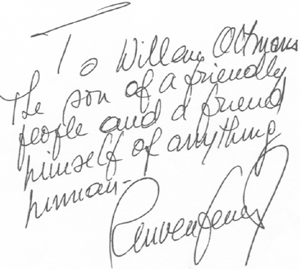 To Willem Oltmans
The son of a friendly
people and a friend
himself of anything
human-